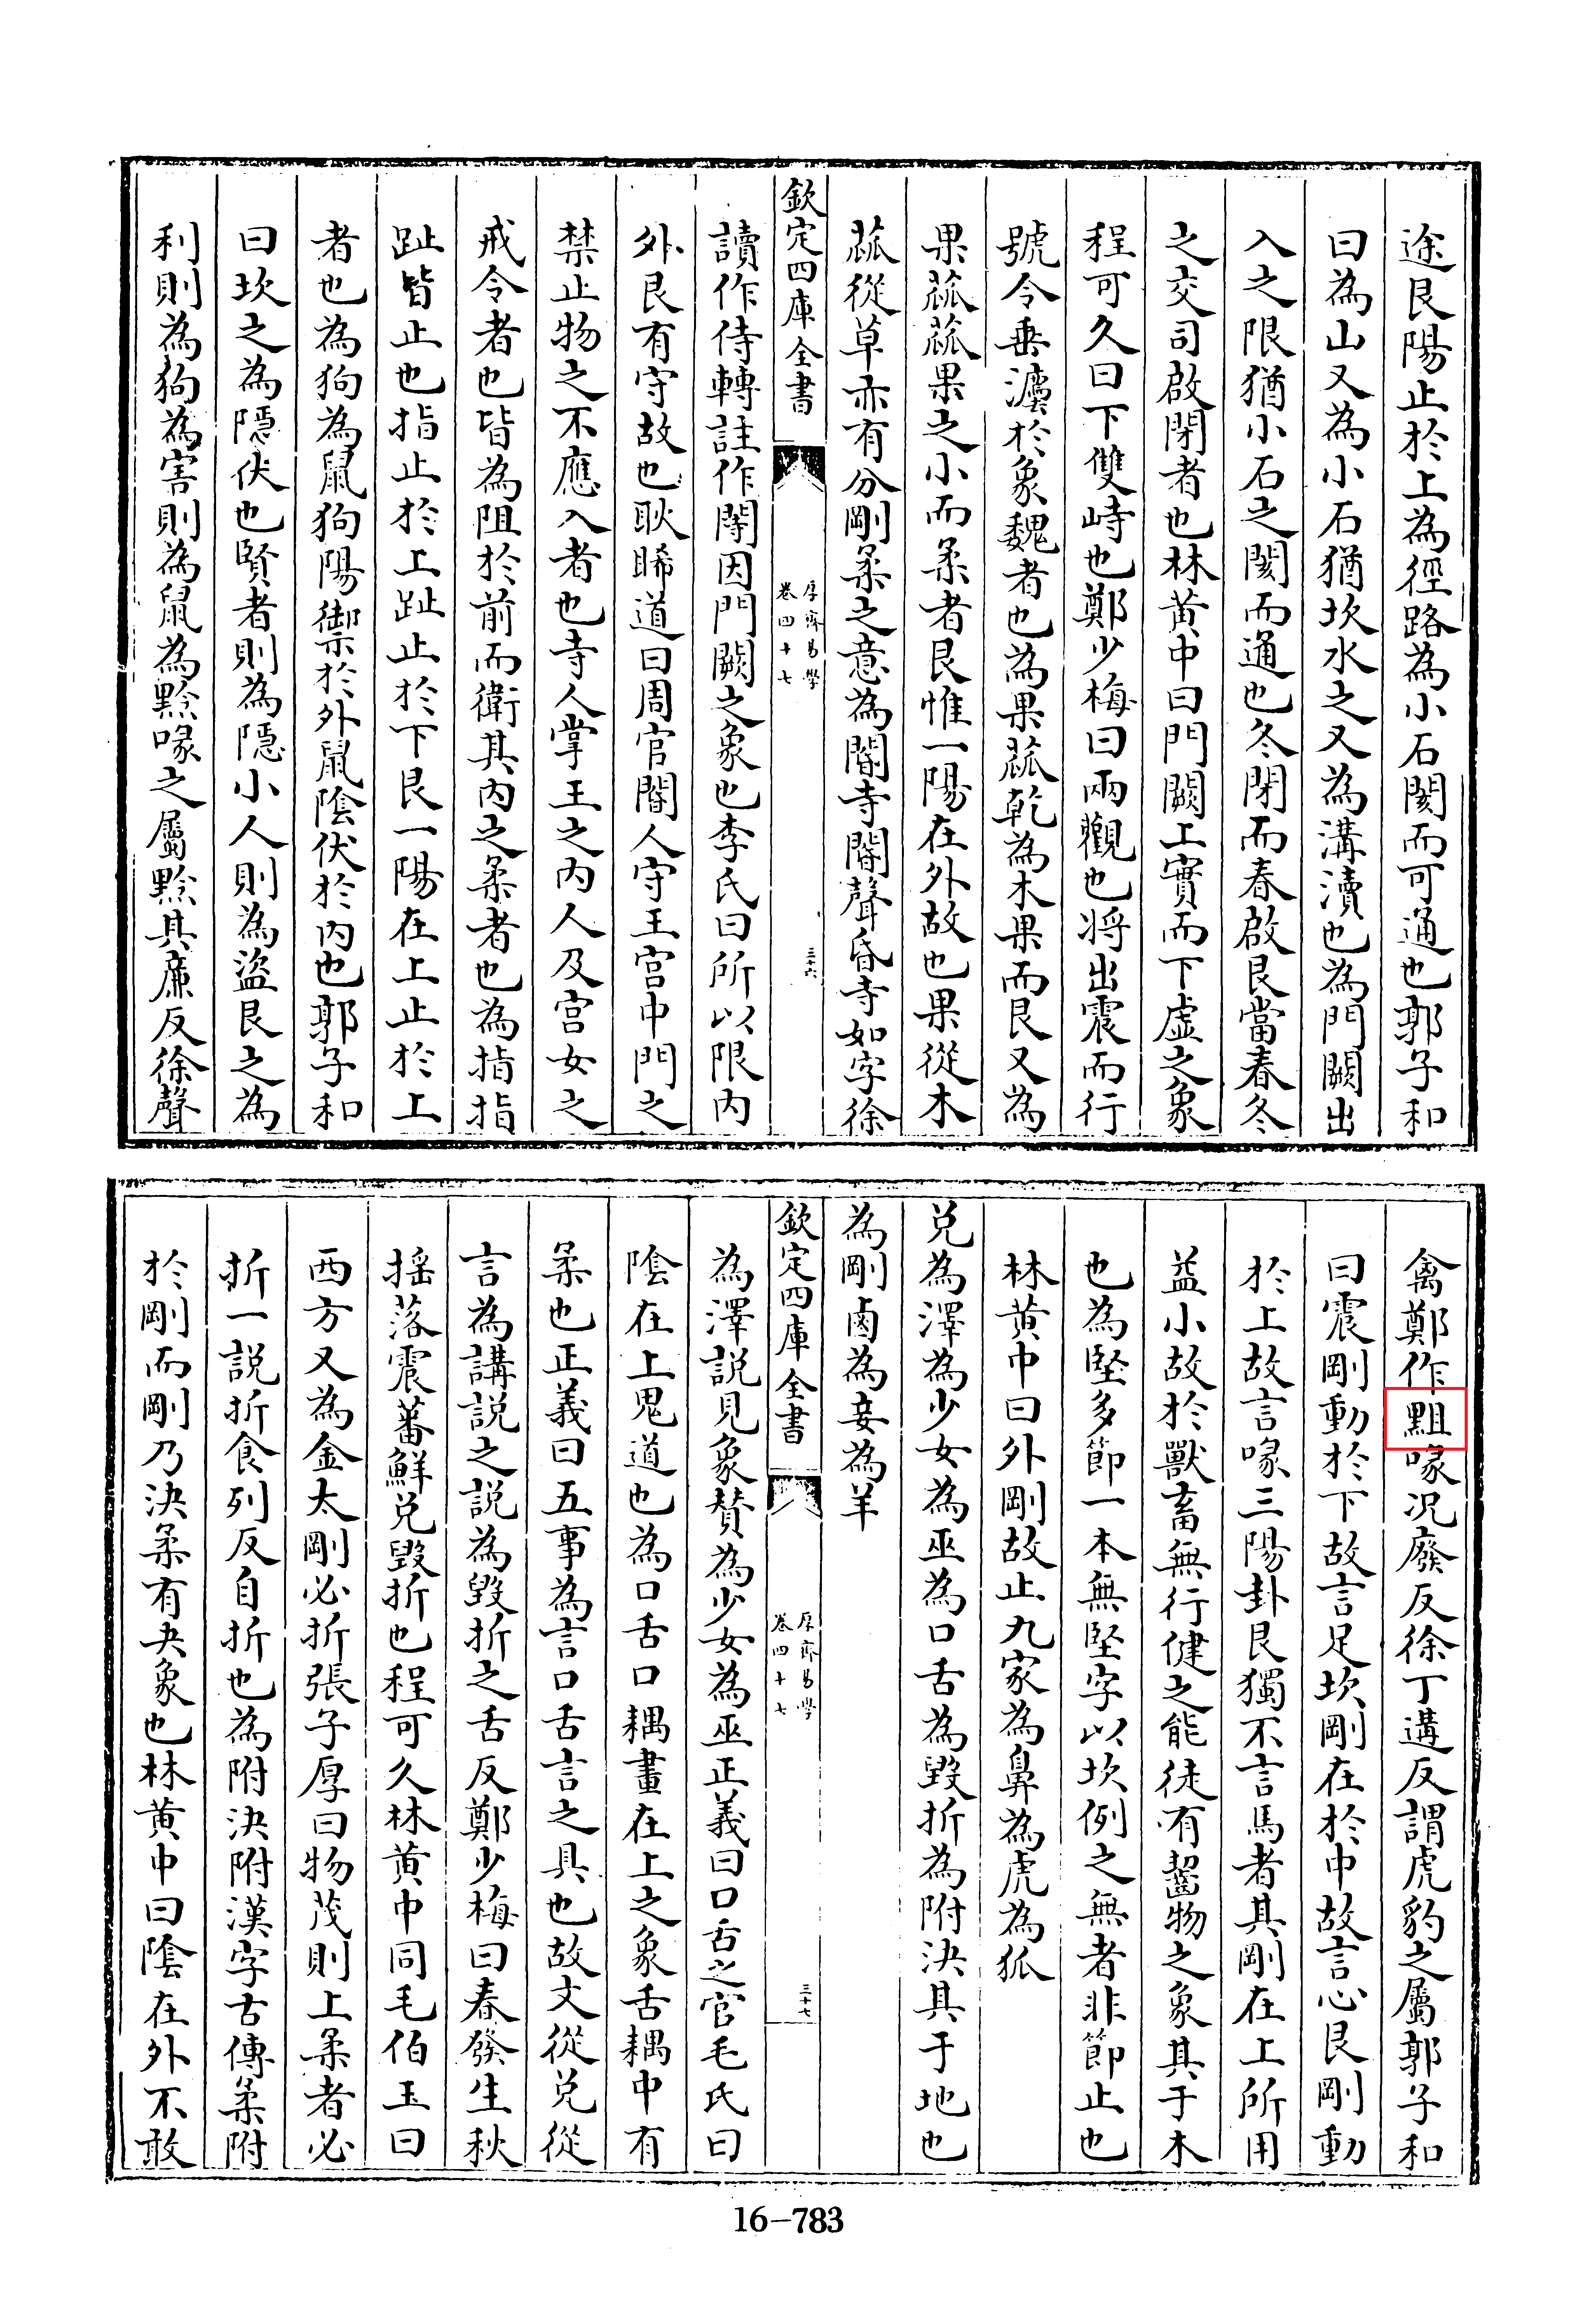 途艮陽止於上為徑路為小石閡而可通也郭子和
曰為山又為小石猶坎水之又為溝瀆也為門闕出
入之限猶小石之閡而通也冬閉而春啟艮當春冬
之交司啟閉者也林黄中曰門闕上實而下虛之象
程可久曰下雙峙也鄭少梅曰兩觀也將出震而行
號令垂灋於象魏者也為果蓏乾為木果而艮又為
果蓏蓏果之小而柔者艮惟一陽在外故也果從木
蓏從草亦有分剛柔之意為閽寺閽聲昏寺如字徐
欽定四庫全書
厚齋易學
卷四十七
三十六
讀作侍轉註作闍因門闕之象也李氏曰所以限内
外艮有守故也耿睎道曰周官閽人守王宫中門之
禁止物之不應入者也寺人掌王之内人及宫女之
戒令者也皆為阻於前而衛其内之柔者也為指指
趾皆止也指止於上趾止於下艮一陽在上止於上
者也為狗為鼠狗陽禦於外鼠陰伏於内也郭子和
曰坎之為隱伏也賢者則為隱小人則為盜艮之為
利則為狗為害則為鼠為黔喙之屬黔其廉反徐聲
禽鄭作喙况廢反徐丁遘反謂虎豹之屬郭子和
曰震剛動於下故言足坎剛在於中故言心艮剛動
於上故言喙三陽卦艮獨不言馬者其剛在上所用
益小故於獸畜無行健之能徒有齧物之象其于木
也為堅多節一本無堅字以坎例之無者非節止也
林黄中曰外剛故止九家為鼻為虎為狐
兑為澤為少女為巫為口舌為毀折為附決其于地也
為剛鹵為妾為羊
欽定四庫全書
厚齋易學
卷四十七
三十七
為澤説見象賛為少女為巫正義曰口舌之官毛氏曰
陰在上鬼道也為口舌口耦畫在上之象舌耦中有
柔也正義曰五事為言口舌言之具也故文從兑從
言為講説之説為毀折之舌反鄭少梅曰春發生秋
揺落震蕃鮮兑毀折也程可久林黄中同毛伯玉曰
西方又為金太剛必折張子厚曰物茂則上柔者必
折一説折食列反自折也為附決附漢字古傳柔附
於剛而剛乃決柔有夬象也林黄中曰陰在外不敢
16-783